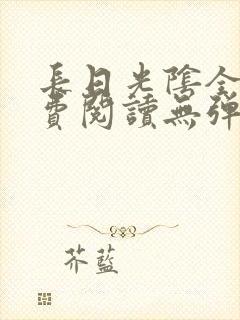 長日光陰全
費閱讀無彈
芥藍